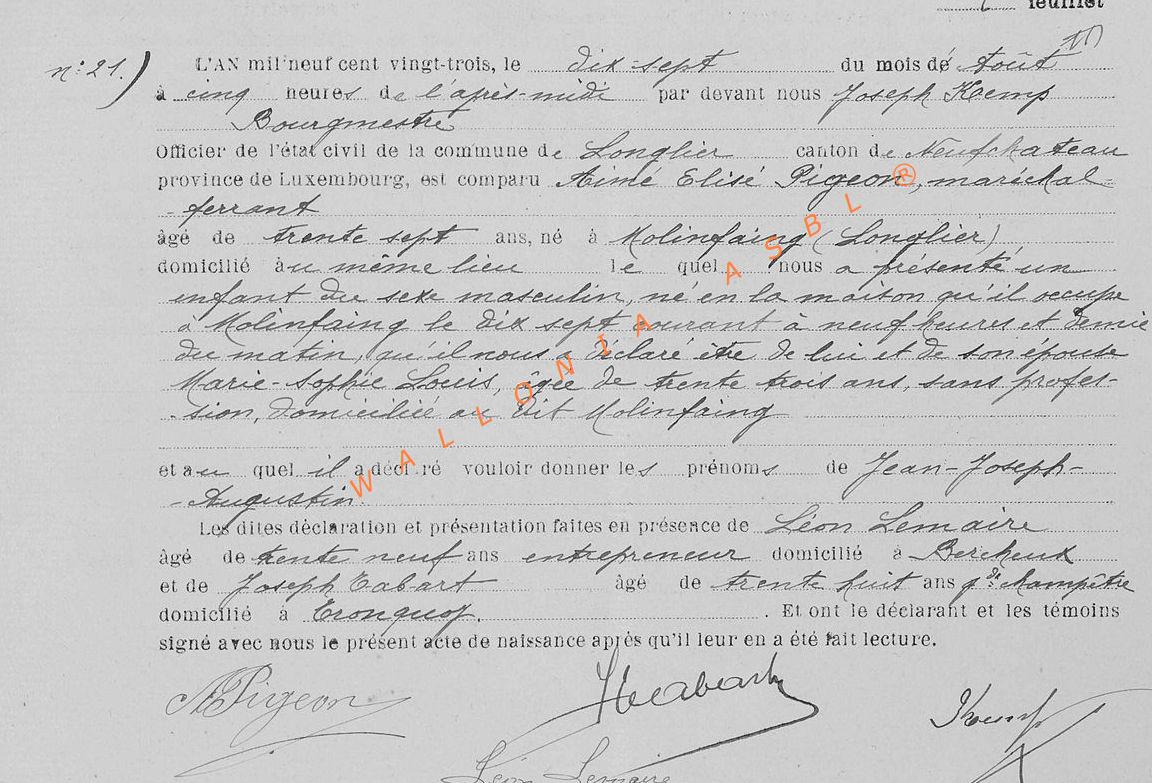 feuillet
n: 21.) L'AN mil neuf cent vingt-trois, le dix-sept du mois de Août
à cinq heures de l'après-midi par devant nous Joseph Kemp
Bourgmestre
Officier de l'état civil de la commune de Longlier canton de Neufchateau
province de Luxembourg, est comparu Aimé Elisé Pigeon, maréchal-
-ferrant
âgé de trente sept ans, né à Molinfaing (Longlier)
domicilié au même lieu le quel nous a présenté un
enfant du sexe masculin, né en la maison qu'il occupe
à Molinfaing le dix sept courant à neuf heures et demie
du matin, qu'il nous a déclaré être de lui et de son épouse
Marie-Sophie Louis, âgée de trente trois ans, sans profes-
-sion, domiciliée au dit Molinfaing
et au quel il a déclaré vouloir donner les prénoms de Jean-Joseph-
-Augustin.
Les dites déclaration et présentation faites en présence de Léon Lemaire
âgé de trente neuf ans entrepreneur domicilié à Bercheux
et de Joseph Tabart âgé de trente huit ans gde champêtre
domicilié à Tronquoy. Et ont le déclarant et les témoins
signé avec nous le présent acte de naissance après qu'il leur en a été fait lecture.
A Pigeon Kemp
Léon Lemaire
WALLONIA ASBL ®